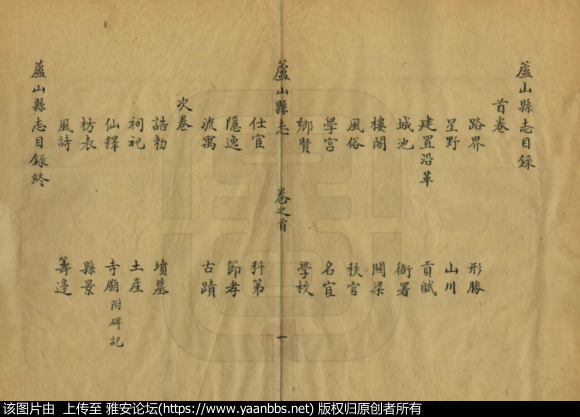 蘆山縣志目録
首卷
路界 形勝
星野 山川
建置沿革 貢賦
城池 衙署
樓閣 關梁
風俗 秩官
學宮 名宦
鄉賢 學校
蘆山縣志 卷之首 一
仕宦 科第
隱逸 節孝
流寓 古蹟
次卷
誥勅 墳墓
祠祀 土產
仙釋 寺廟附碑記
坊表 縣景
風詩 籌邊
蘆山縣志目録終
该图片由 上传至 雅安论坛(https://www.yaanbbs.net) 版权归原创者所有